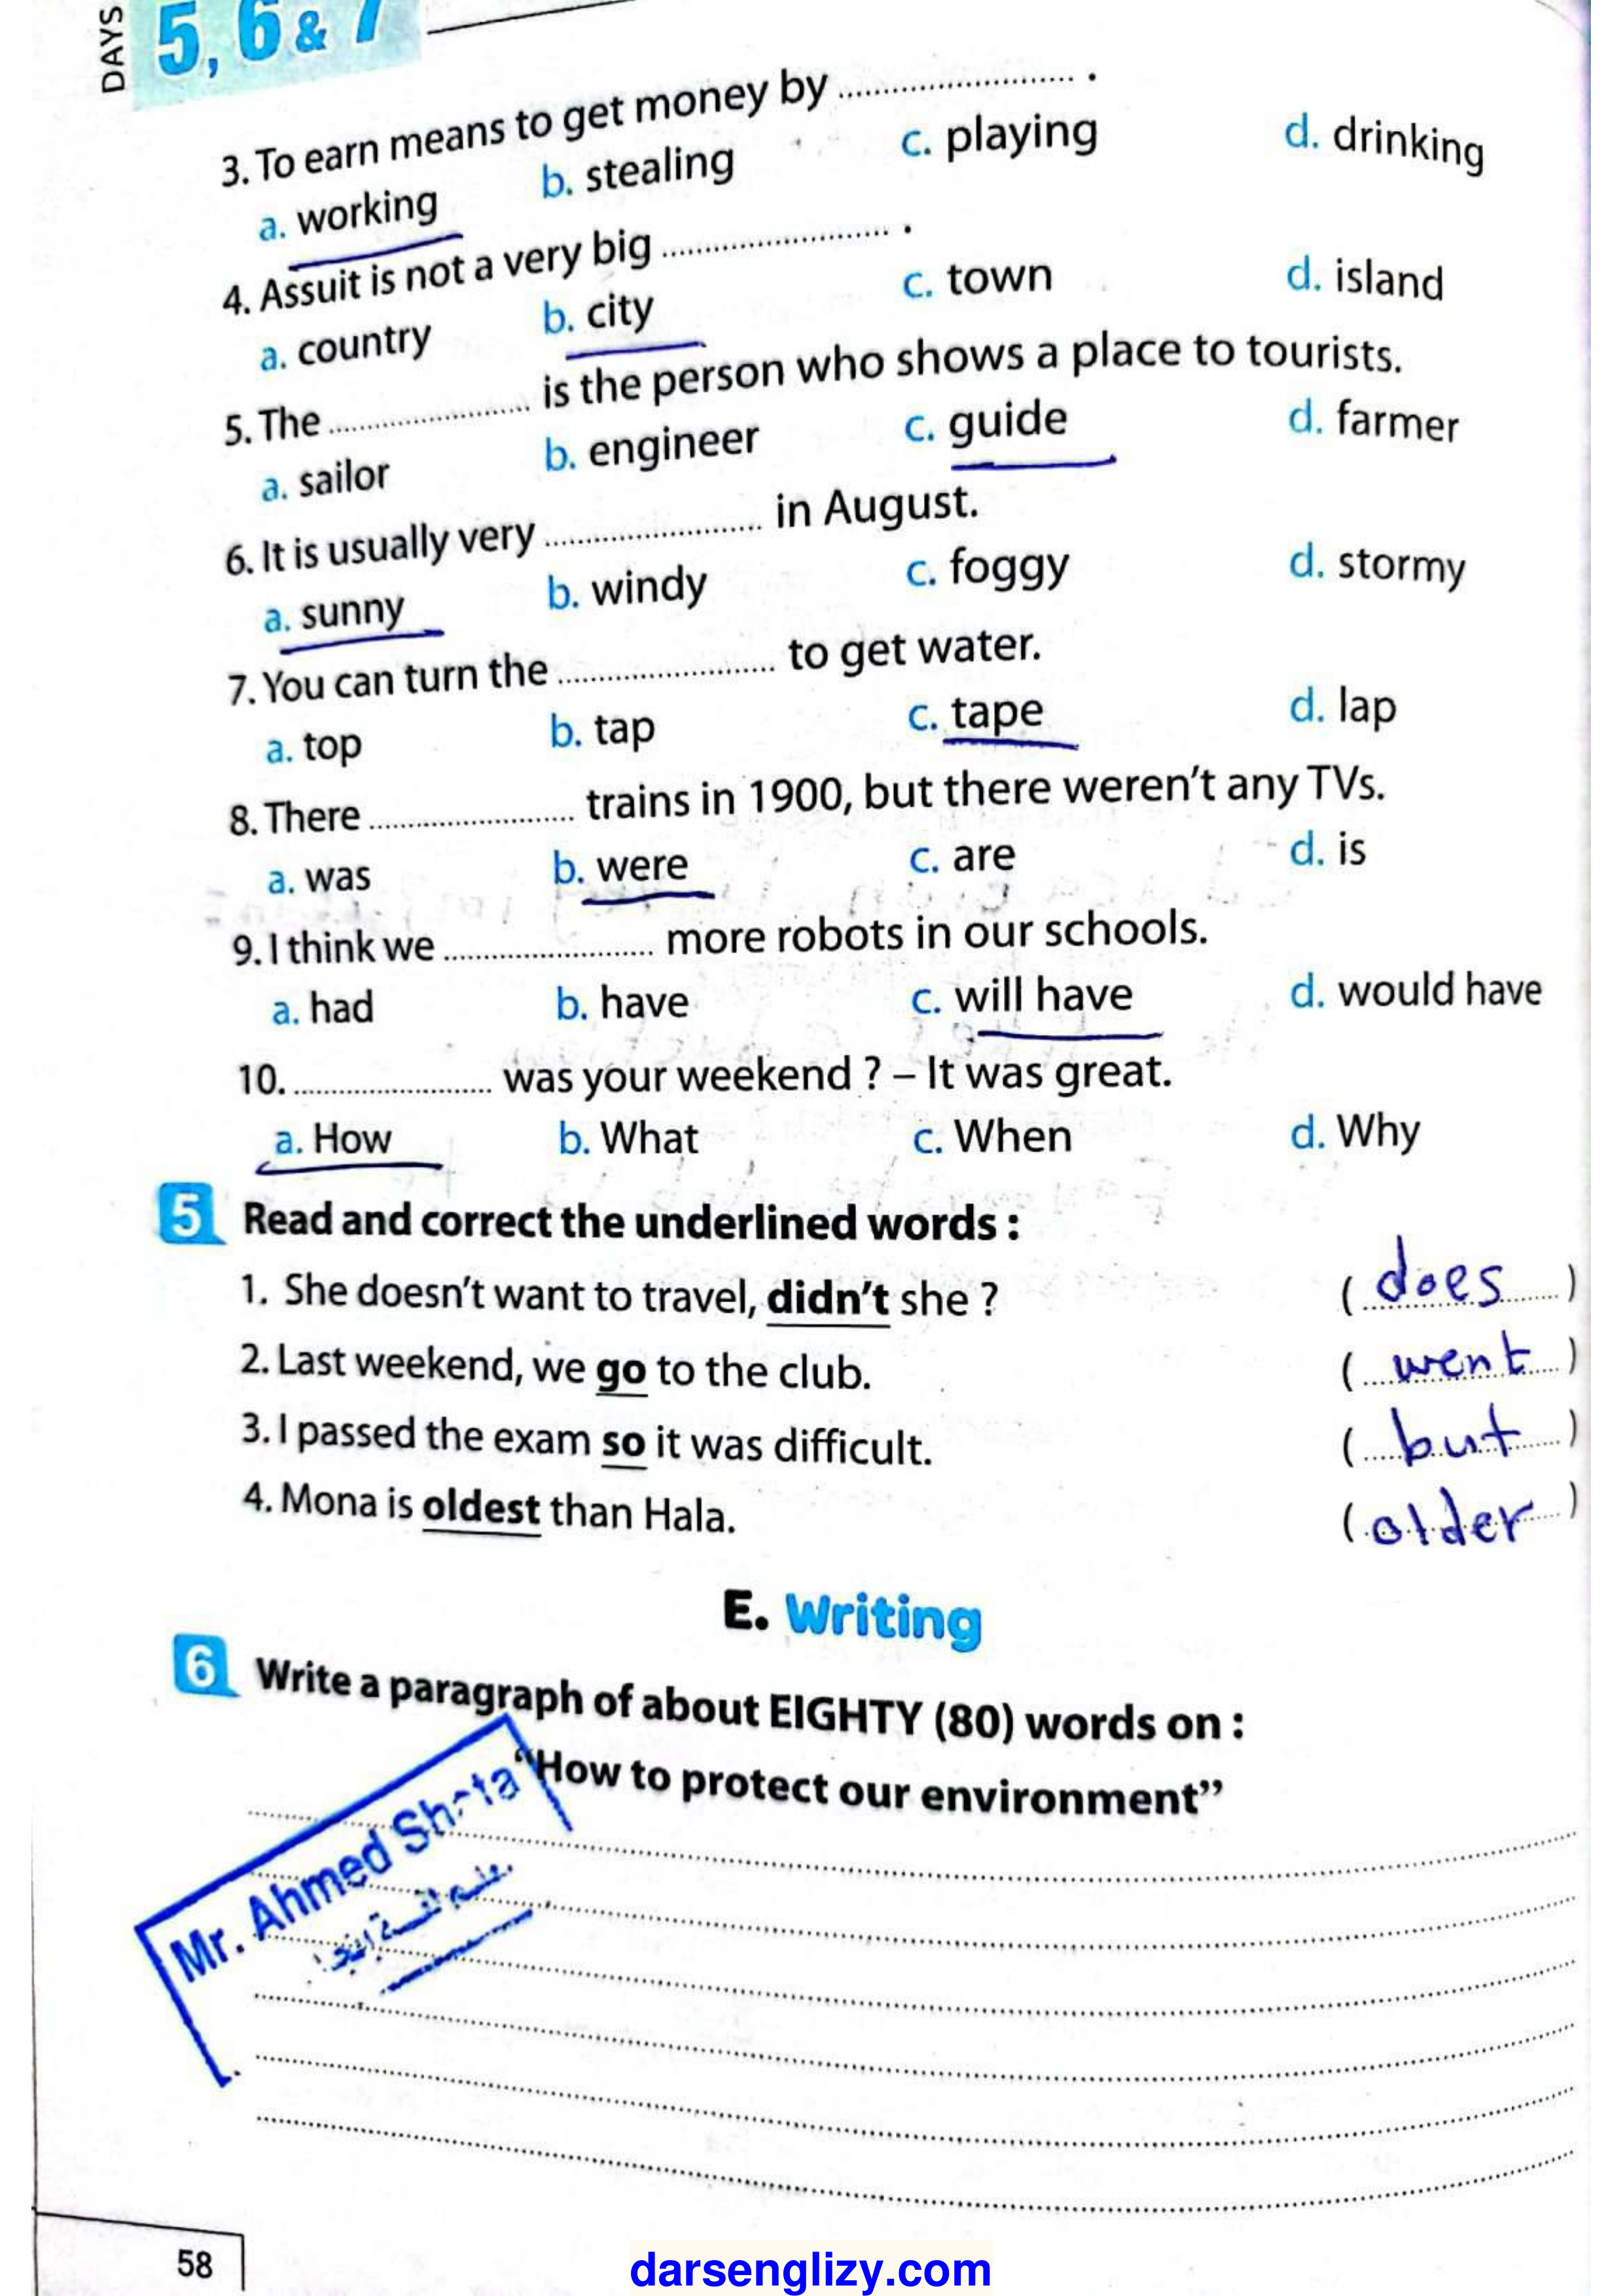 DAYS 5, 6 & 7
3. To earn means to get money by ........................ .
a. working b. stealing c. playing d. drinking
4. Assuit is not a very big ........................ .
a. country b. city c. town d. island
5. The ........................ is the person who shows a place to tourists.
a. sailor b. engineer c. guide d. farmer
6. It is usually very ........................ in August.
a. sunny b. windy c. foggy d. stormy
7. You can turn the ........................ to get water.
a. top b. tap c. tape d. lap
8. There ........................ trains in 1900, but there weren't any TVs.
a. was b. were c. are d. is
9. I think we ........................ more robots in our schools.
a. had b. have c. will have d. would have
10. ........................ was your weekend ? – It was great.
a. How b. What c. When d. Why
5 Read and correct the underlined words :
1. She doesn't want to travel, didn't she ? (does)
2. Last weekend, we go to the club. (went)
3. I passed the exam so it was difficult. (but)
4. Mona is oldest than Hala. (older)
E. Writing
6 Write a paragraph of about EIGHTY (80) words on :
"How to protect our environment"
Mr. Ahmed
58
darsenglizy.com